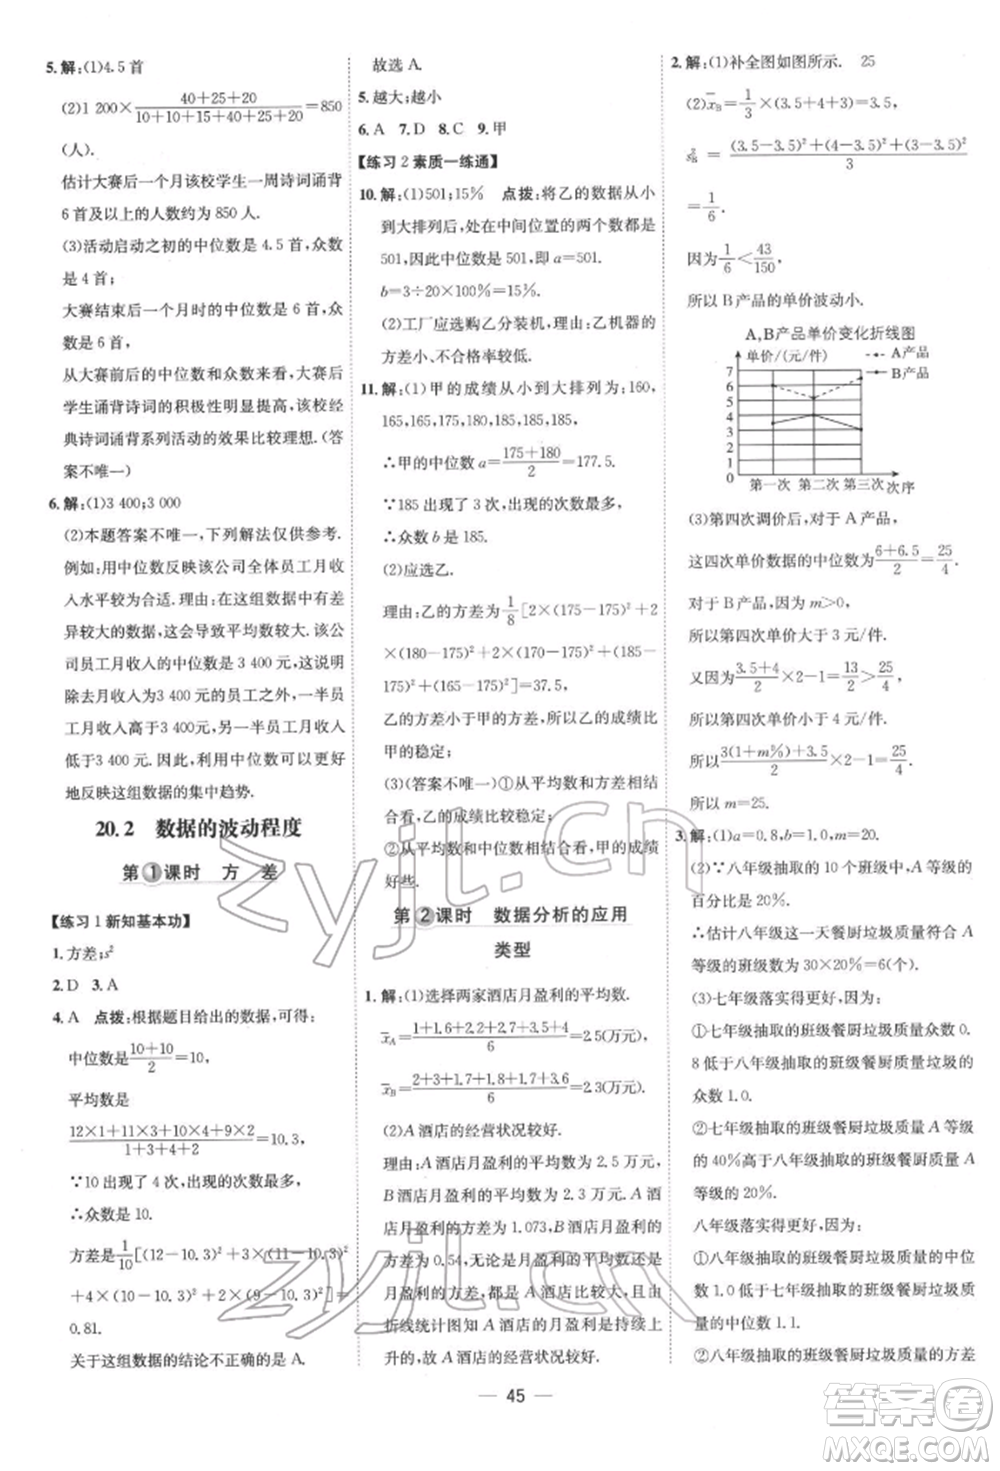 5. 解:(1)4.5 首
(2)1 200×(40+25+20)/(10+10+15+40+25+20)=850
(人).
估计大赛后一个月该校学生一周诗词诵背
6 首及以上的人数约为 850 人.
(3)活动启动之初的中位数是 4.5 首,众数
是 4 首;
大赛结束后一个月时的中位数是 6 首,众
数是 6 首.
从大赛前后的中位数和众数看,大赛后
学生诵背诗词的积极性明显提高,该校经
典诗词诵背系列活动的效果比较理想.(答
案不唯一)
6. 解:(1)3 400;3 000
(2)本题答案不唯一,下列解法仅供参考.
例如,用中位数反映该公司全体员工月收
入水平较为合适.理由:在这组数据中有差
异较大的数据,这会导致平均数较大.该公
司员工月收入的中位数是 3 400 元,这说明
除去月收入为 3 400 元的员工之外,一半员
工月收入高于 3 400 元,另一半员工月收入
低于 3 400 元.因此,利用中位数可以更好
地反映这组数据的集中趋势.
20.2 数据的波动程度
第①课时 方 差
【练习 1 新知基本功】
1. 方差;s²
2. D 3. A
4. A 点拨:根据题目给出的数据,可得:
中位数是(10+10)/2=10,
平均数是
(12×1+11×3+10×4+9×2)/(1+3+4+2)=10.3,
∵10 出现了 4 次,出现次数最多,
∴众数是 10.
方差是1/10[(12-10.3)²+3×(11-10.3)²
+4×(10-10.3)²+2×(9-10.3)²]=
0.81.
关于这组数据的结论不正确的是 A.
故选 A.
5. 越大;越小
6. A 7. D 8. C 9. 甲
【练习 2 素质一练通】
10. 解:(1)501;15% 点拨:将乙的数据从小
到大排列后,处在中间位置的两个数都是
501,因此中位数是 501,即 a=501.
b=3÷20×100%=15%.
(2)工厂应选购乙分装机,理由:乙机器的
方差小、不合格率较低.
11. 解:(1)甲的成绩从小到大排列为:160,
165,165,175,180,185,185,185,
∴甲的中位数 a=(175+180)/2=177.5.
∵185 出现了 3 次,出现的次数最多,
∴众数 b 是 185.
(2)应选乙.
理由:乙的方差为1/8[2×(175-175)²+2
×(180-175)²+2×(170-175)²+(185-
175)²+(165-175)²]=37.5,
乙的方差小于甲的方差,所以乙的成绩比
甲的稳定;
(3)(答案不唯一)①从平均数和方差相结
合看,乙的成绩比较稳定;
②从平均数和中位数相结合看,甲的成绩
好些.
第②课时 数据分析的应用
类型
1. 解:(1)选择两家酒店月盈利的平均数.
x̄A=(1+1.6+2.2+2.7+3.5+4)/6=2.5(万元),
x̄B=(2+3+1.7+1.8+1.7+3.6)/6=2.3(万元).
(2)A 酒店的经营状况较好.
理由:A 酒店月盈利的平均数为 2.5 万元,
B 酒店月盈利的平均数为 2.3 万元,A 酒
店月盈利的方差为 1.073,B 酒店月盈利的
方差为 0.54,无论是月盈利的平均数还是
月盈利的方差,都是 A 酒店比较大,且由
折线统计图知 A 酒店的月盈利是持续上
升的,故 A 酒店的经营状况较好.
2. 解:(1)补全图如图所示. 25
(2)x̄B=1/3×(3.5+4+3)=3.5,
s²B=((3.5-3.5)²+(4-3.5)²+(3-3.5)²)/3
=1/6.
因为1/6<43/150,
所以 B 产品的单价波动小.
A,B产品单价变化折线图
单价/(元/件) A 产品
B 产品
7
6
5
4
3
2
1
0
第一次 第二次 第三次 次序
(3)第四次调价后,对于 A 产品,
这四次单价数据的中位数为(6+6.5)/2=25/4;
对于 B 产品,因为 m>0,
所以第四次单价大于 3 元/件.
又因为(3.5+4)/2×2-1=13/2>25/4,
所以第四次单价小于 4 元/件.
所以(3(1+m%)+3.5)/2×2-1=25/4.
所以 m=25.
3. 解:(1)a=0.8,b=1.0,m=20.
(2)∵八年级抽取的 10 个班级中,A 等级的
百分比是 20%,
∴估计八年级这一天餐厨垃圾质量符合 A
等级的班级数为 30×20%=6(个).
(3)七年级落实得更好,理由:
①七年级抽取的班级餐厨垃圾质量众数 0.
8 低于八年级抽取的班级餐厨垃圾质量的
众数 1.0.
②七年级抽取的班级餐厨垃圾质量 A 等级
的 40%高于八年级抽取的班级餐厨垃圾质
量 A 等级的 20%.
八年级落实得更好,因为:
①八年级抽取的班级餐厨垃圾质量的中位
数 1.0 低于七年级抽取的班级餐厨垃圾质
量的中位数 1.1.
②八年级抽取的班级餐厨垃圾质量的方差
45
zyjl.cn
zyjl.cn
答案圈
MXQE.COM